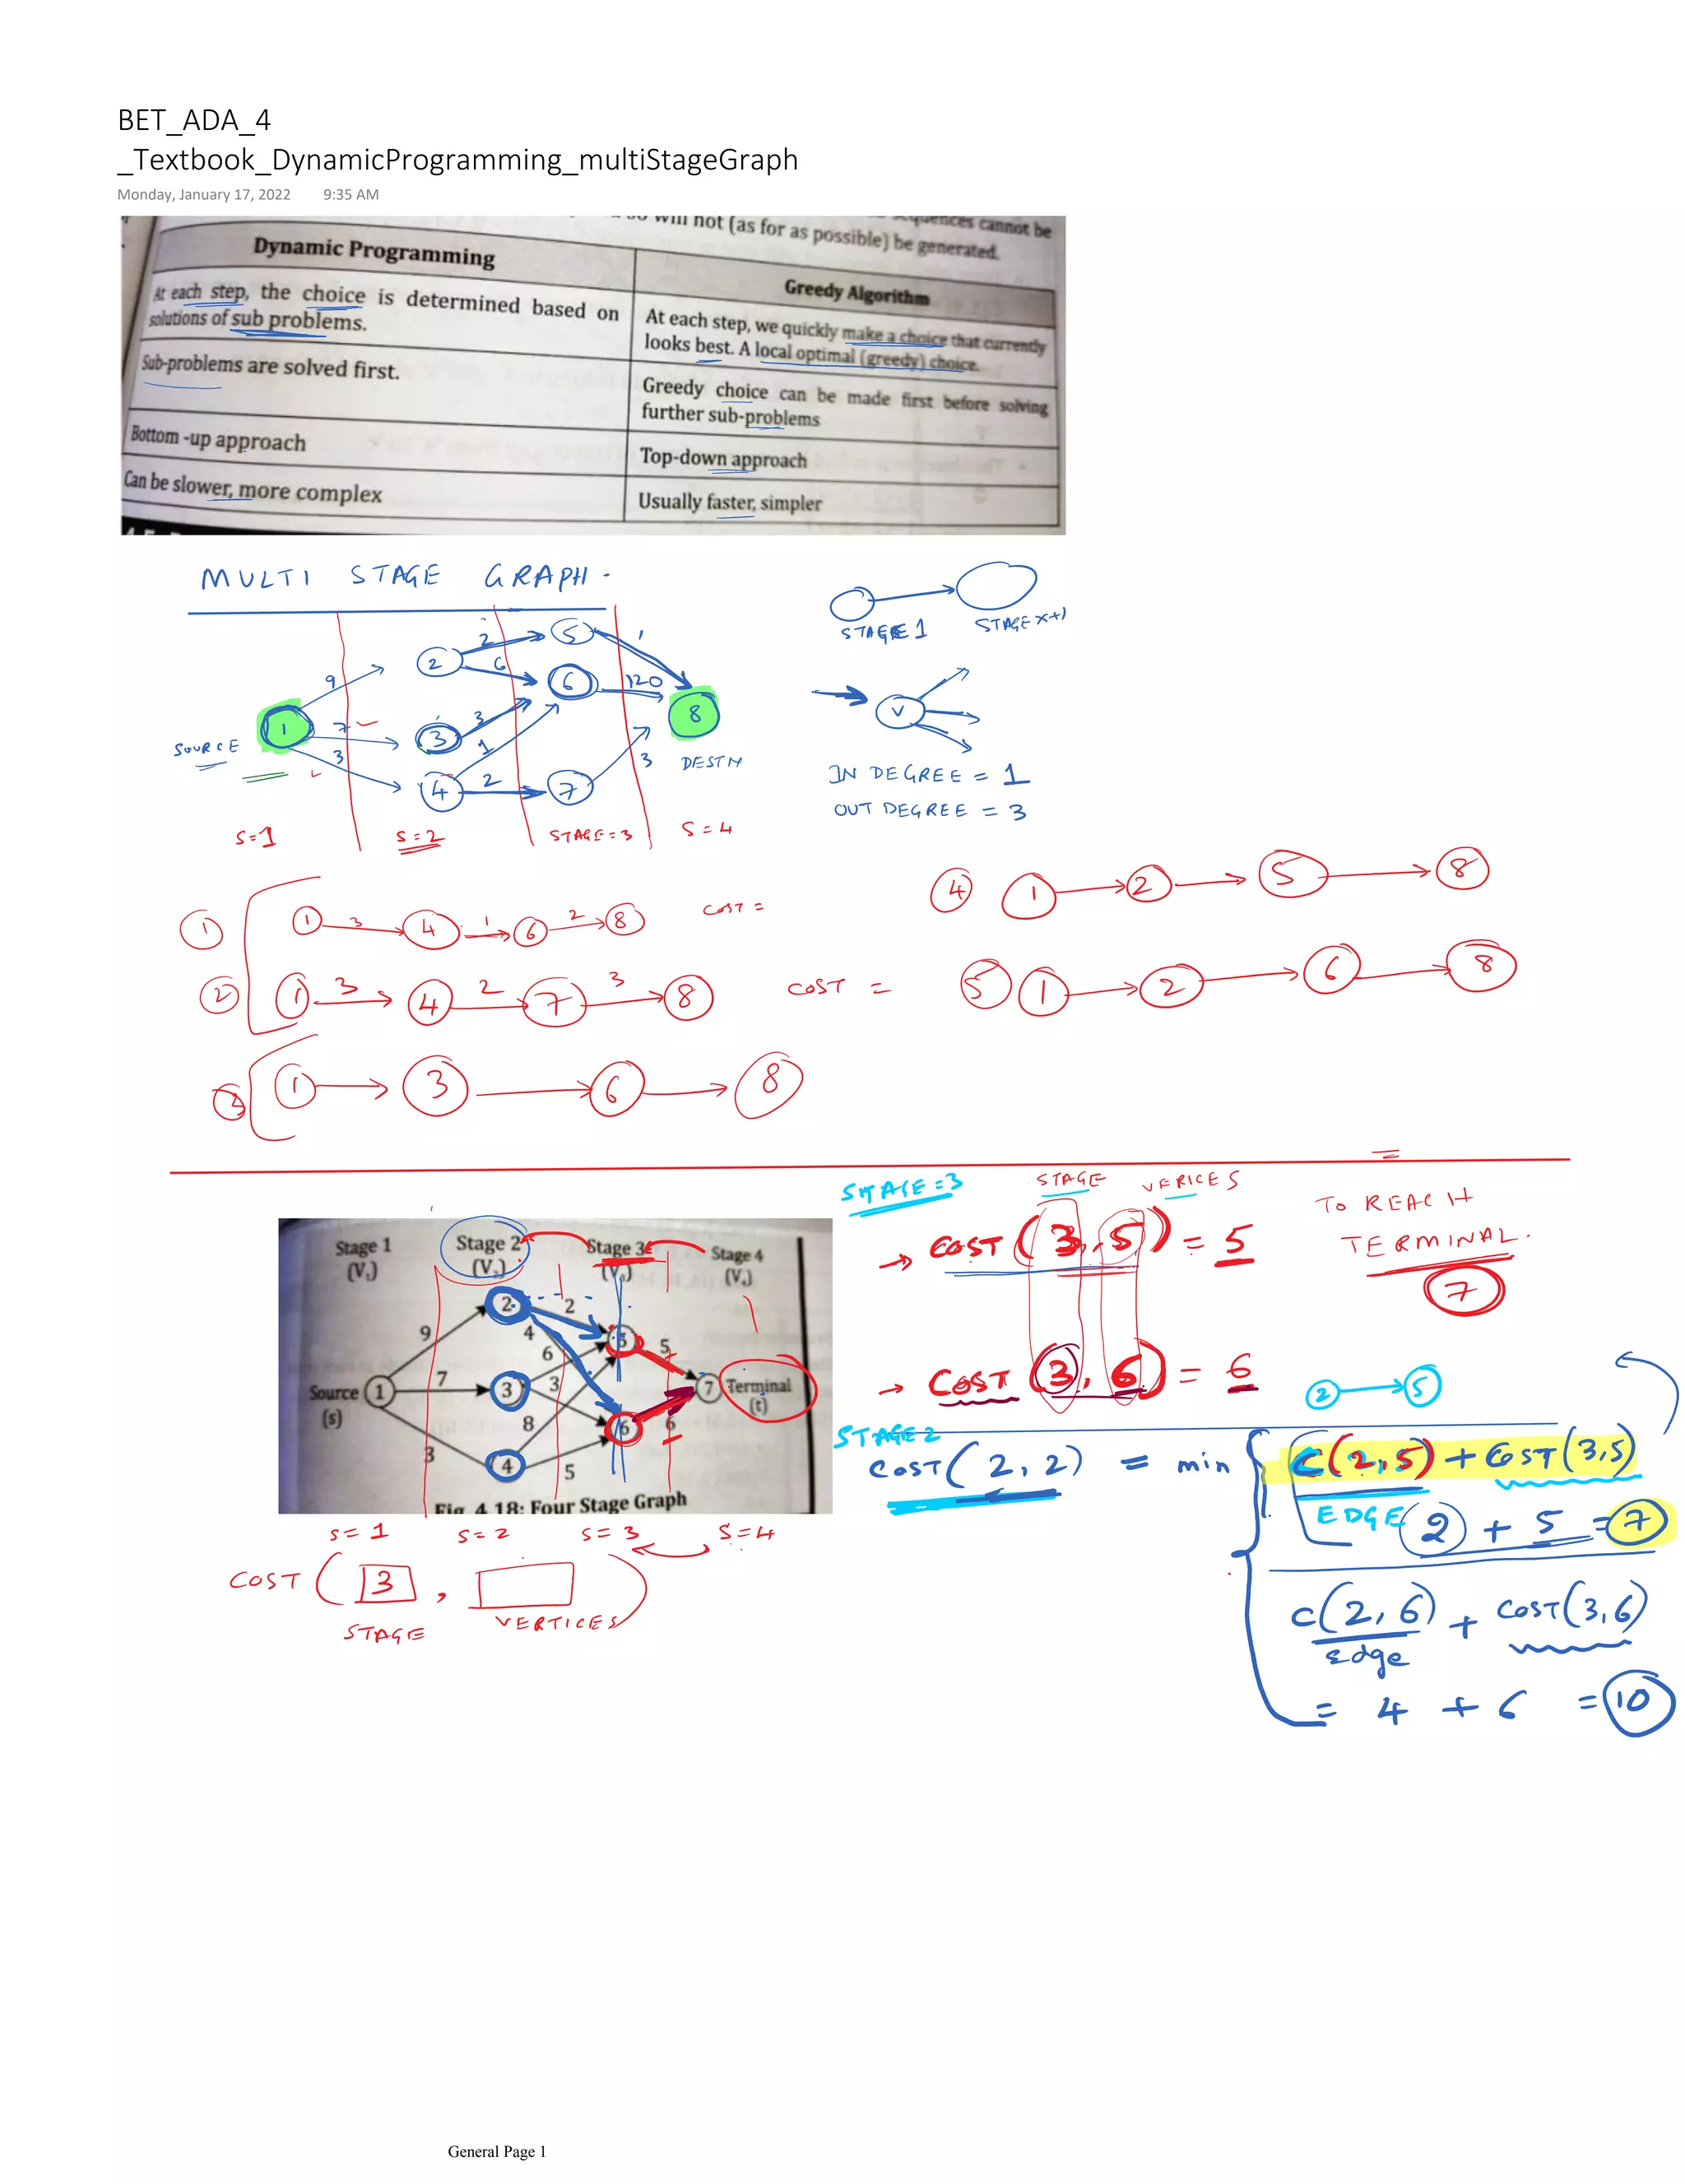 BET_ADA_4
_Textbook_DynamicProgramming_multiStageGraph
Monday, January 17, 2022 9:35 AM
will not (as for as possible) be generated.
sequences cannot be
Dynamic Programming
Greedy Algorithm
At each step, the choice is determined based on
solutions of sub problems.
At each step, we quickly make a choice that currently
looks best. A local optimal (greedy) choice.
Sub-problems are solved first.
Greedy choice can be made first before solving
further sub-problems
Bottom -up approach
Top-down approach
Can be slower, more complex
Usually faster, simpler
MULTI STAGE GRAPH.
STAGE 1
STAGE x+1
2 5 1
2 6 6 120
9
1 7 3 3 8
SOURCE
3 1
4 2 7 3 DESTN
V
IN DEGREE = 1
OUT DEGREE = 3
S=1 S=2 STAGE=3 S=4
① 1 3 4 1 6 2 8 COST =
② 1 3 4 2 7 3 8 COST =
③ 1 3 6 8
④ 1 2 5 8
⑤ 1 2 6 8
=
STAGE=3
STAGE VERICES
COST (3, 5) = 5
TO REACH
TERMINAL.
7
COST (3, 6) = 6
2 5
Stage 1 Stage 2 Stage 3 Stage 4
(V₁) (V₂) (V₃) (V₄)
2 2
9 4 6 5 5
Source 1 7 3 3 7 Terminal
(s) (t)
8 6 6
3 4 5
Fig 4.18: Four Stage Graph
S=1 S=2 S=3 S=4
COST ( 3 , )
STAGE VERTICES
STAGE 2
COST (2, 2) = min { C(2,5) + COST(3,5)
EDGE 2 + 5 = 7
C(2,6) + COST(3,6)
Edge
= 4 + 6 = 10
General Page 1